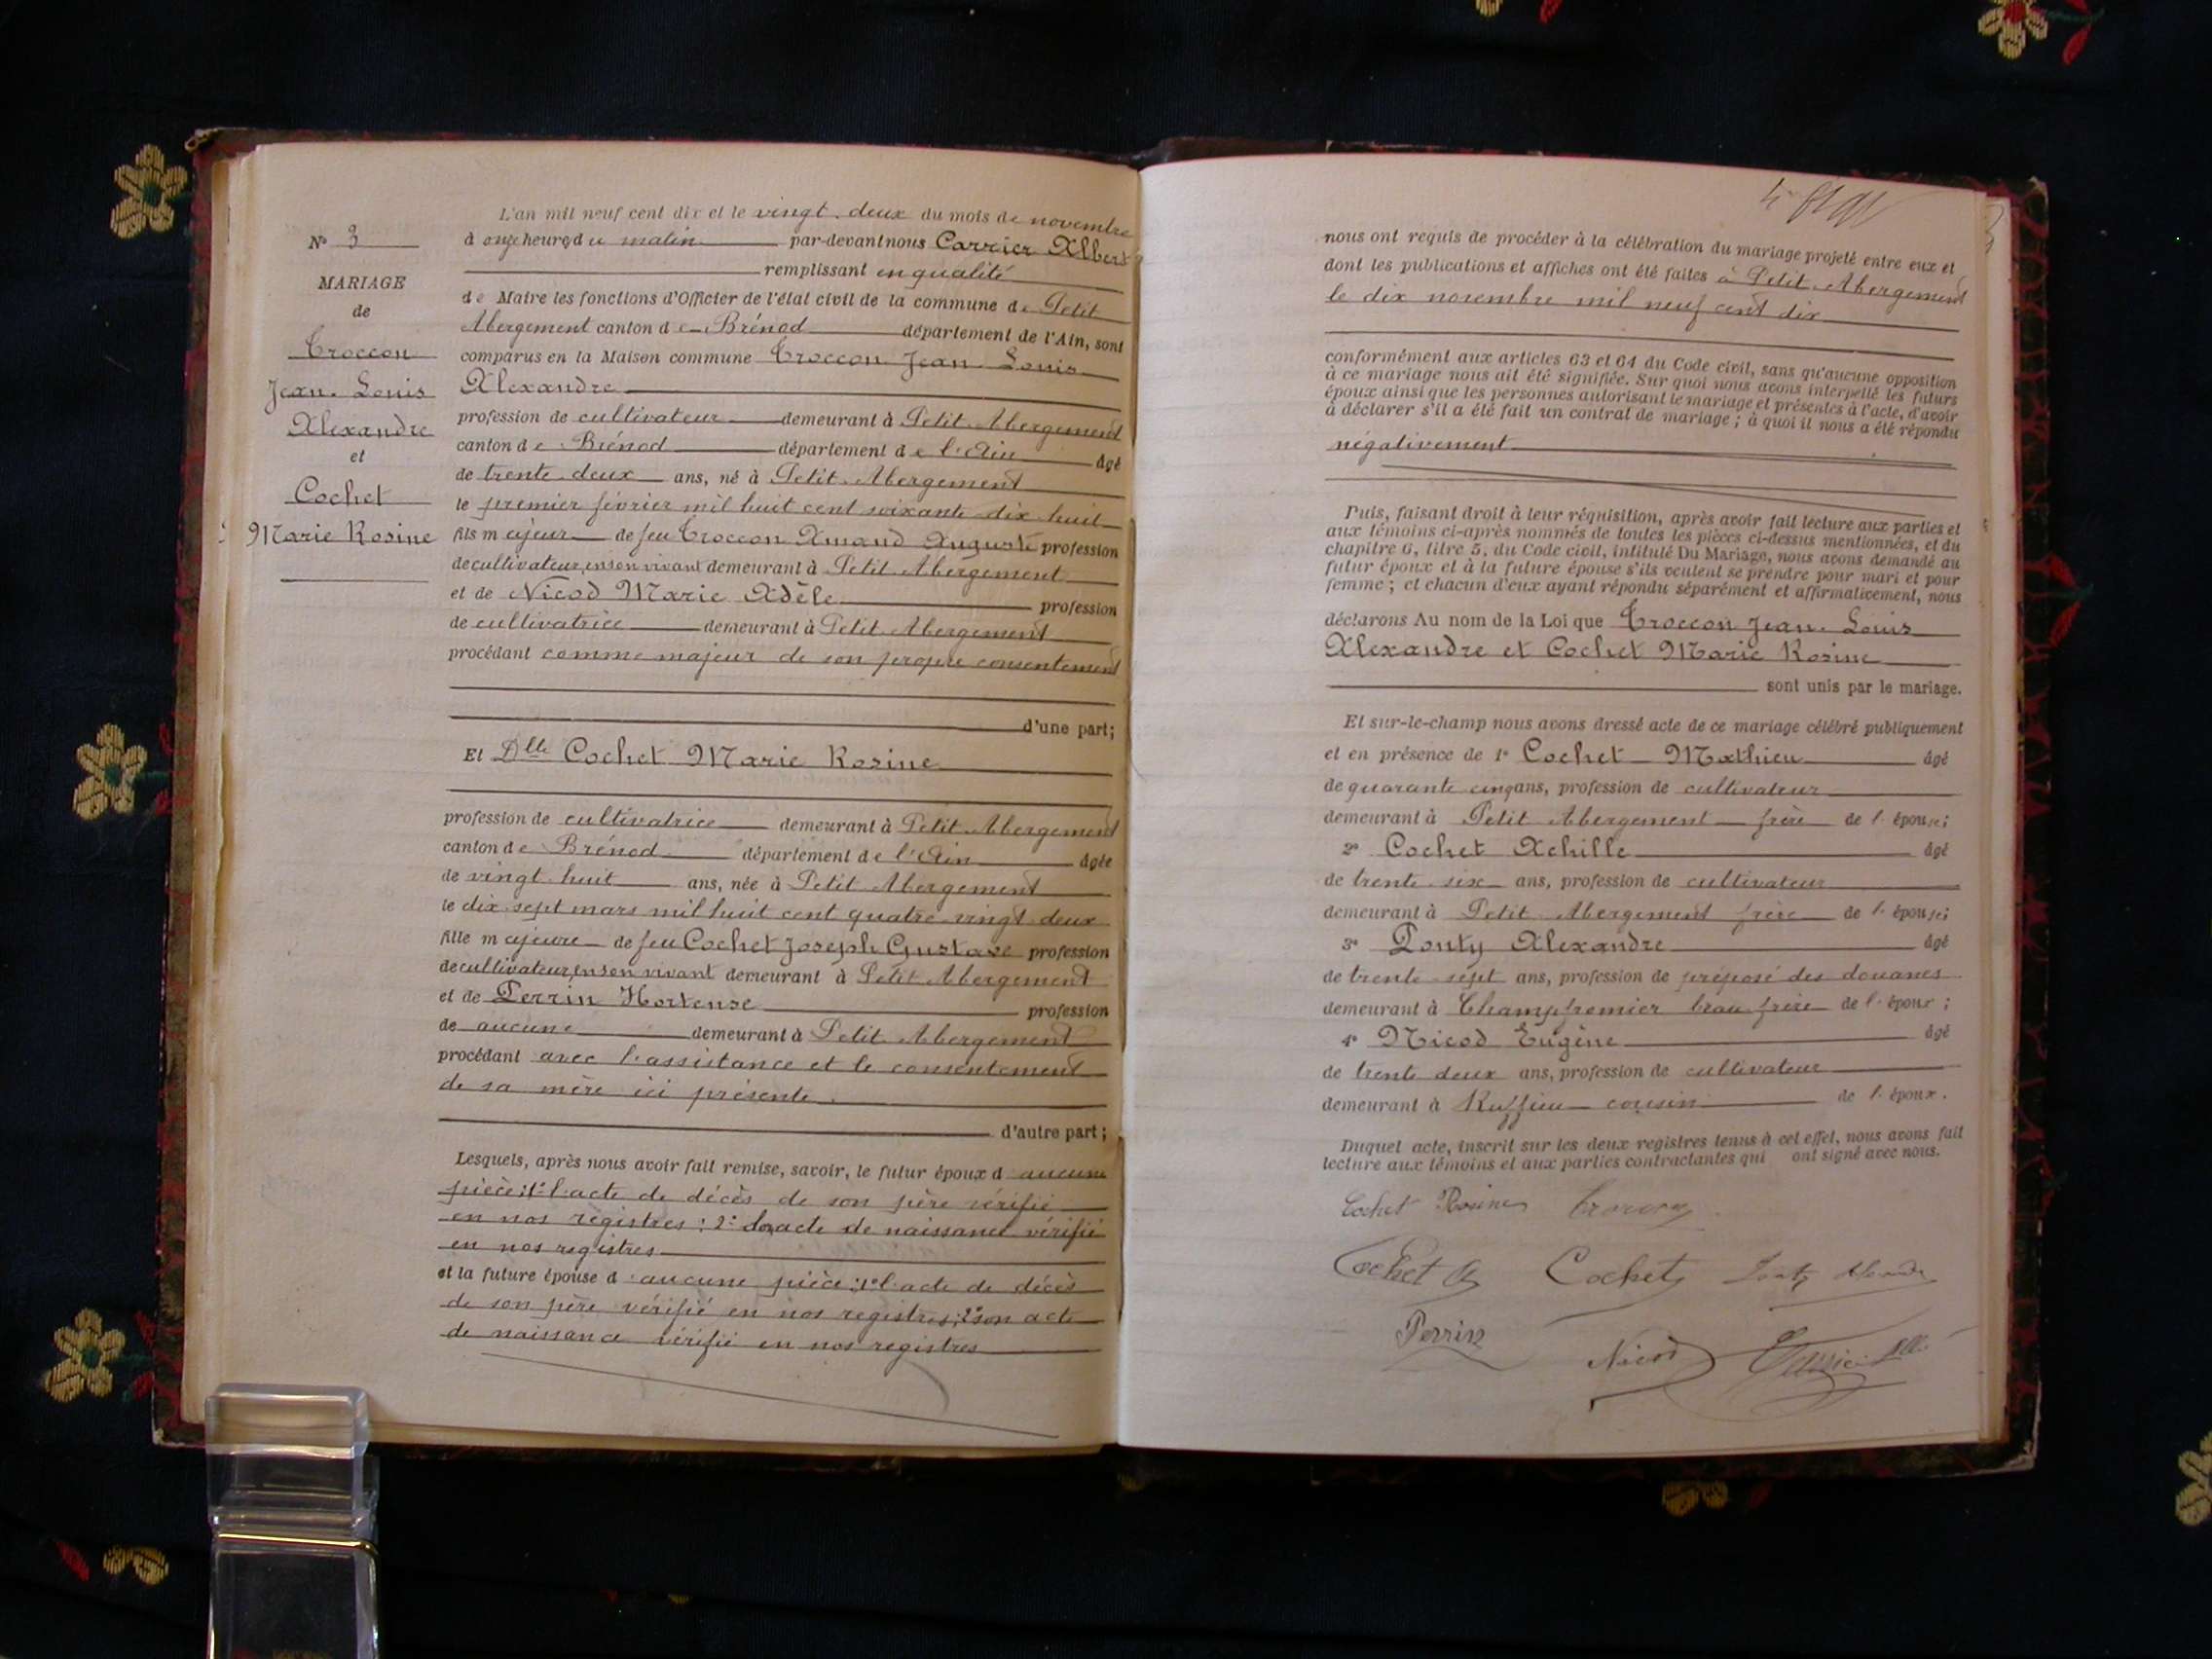 N° 3
MARIAGE
de
Croccon
Jean-Louis
Alexandre
et
Cochet
Marie Rosine
L'an mil neuf cent dix et le vingt-deux du mois de novembre
à onze heures du matin par-devant nous Carrier Albert
remplissant en qualité
de Maire les fonctions d'Officier de l'état civil de la commune de Petit
Abergement canton de Brénod département de l'Ain, sont
comparus en la Maison commune Croccon Jean-Louis
Alexandre
profession de cultivateur demeurant à Petit-Abergement
canton de Brénod département de l'Ain âgé
de trente-deux ans, né à Petit-Abergement
le premier février mil huit cent soixante-dix-huit
fils majeur de feu Croccon Amand Auguste profession
de cultivateur, en son vivant demeurant à Petit-Abergement
et de Nicod Marie Adèle profession
de cultivatrice demeurant à Petit-Abergement
procédant comme majeur de son propre consentement
d'une part;
Et Dlle Cochet Marie Rosine
profession de cultivatrice demeurant à Petit-Abergement
canton de Brénod département de l'Ain âgée
de vingt-huit ans, née à Petit-Abergement
le dix-sept mars mil huit cent quatre-vingt-deux
fille majeure de feu Cochet Joseph Gustave profession
de cultivateur, en son vivant demeurant à Petit-Abergement
et de Perrin Hortense profession
de aucune demeurant à Petit-Abergement
procédant avec l'assistance et le consentement
de sa mère ici présente.
d'autre part;
Lesquels, après nous avoir fait remise, savoir, le futur époux d'aucune
pièce; 1° l'acte de décès de son père vérifié
en nos registres; 2° acte de naissance vérifié
en nos registres
et la future épouse d'aucune pièce; 1° l'acte de décès
de son père vérifié en nos registres; 2° son acte
de naissance vérifié en nos registres
nous ont requis de procéder à la célébration du mariage projeté entre eux et
dont les publications et affiches ont été faites à Petit-Abergement
le dix novembre mil neuf cent dix
conformément aux articles 63 et 64 du Code civil, sans qu'aucune opposition
à ce mariage nous ait été signifiée. Sur quoi nous avons interpellé les futurs
époux ainsi que les personnes autorisant le mariage et présentes à l'acte, d'avoir
à déclarer s'il a été fait un contrat de mariage; à quoi il nous a été répondu
négativement
Puis, faisant droit à leur réquisition, après avoir fait lecture aux parties et
aux témoins ci-après nommés de toutes les pièces ci-dessus mentionnées, et du
chapitre 6, titre 5, du Code civil, intitulé Du Mariage, nous avons demandé au
futur époux et à la future épouse s'ils veulent se prendre pour mari et pour
femme; et chacun d'eux ayant répondu séparément et affirmativement, nous
déclarons Au nom de la Loi que Croccon Jean-Louis
Alexandre et Cochet Marie Rosine
sont unis par le mariage.
Et sur-le-champ nous avons dressé acte de ce mariage célébré publiquement
et en présence de 1° Cochet Mathieu âgé
de quarante cinq ans, profession de cultivateur
demeurant à Petit Abergement frère de l'épouse;
2° Cochet Achille âgé
de trente-six ans, profession de cultivateur
demeurant à Petit-Abergement frère de l'épouse;
3° Ponty Alexandre âgé
de trente-sept ans, profession de préposé des douanes
demeurant à Champfromier beau-frère de l'époux;
4° Nicod Eugène âgé
de trente-deux ans, profession de cultivateur
demeurant à Ruffieu cousin de l'époux.
Duquel acte, inscrit sur les deux registres tenus à cet effet, nous avons fait
lecture aux témoins et aux parties contractantes qui ont signé avec nous.
Cochet Rosine Croccon
Cochet A Cochet Ponty Alexandre
Perrin
Nicod Carrier